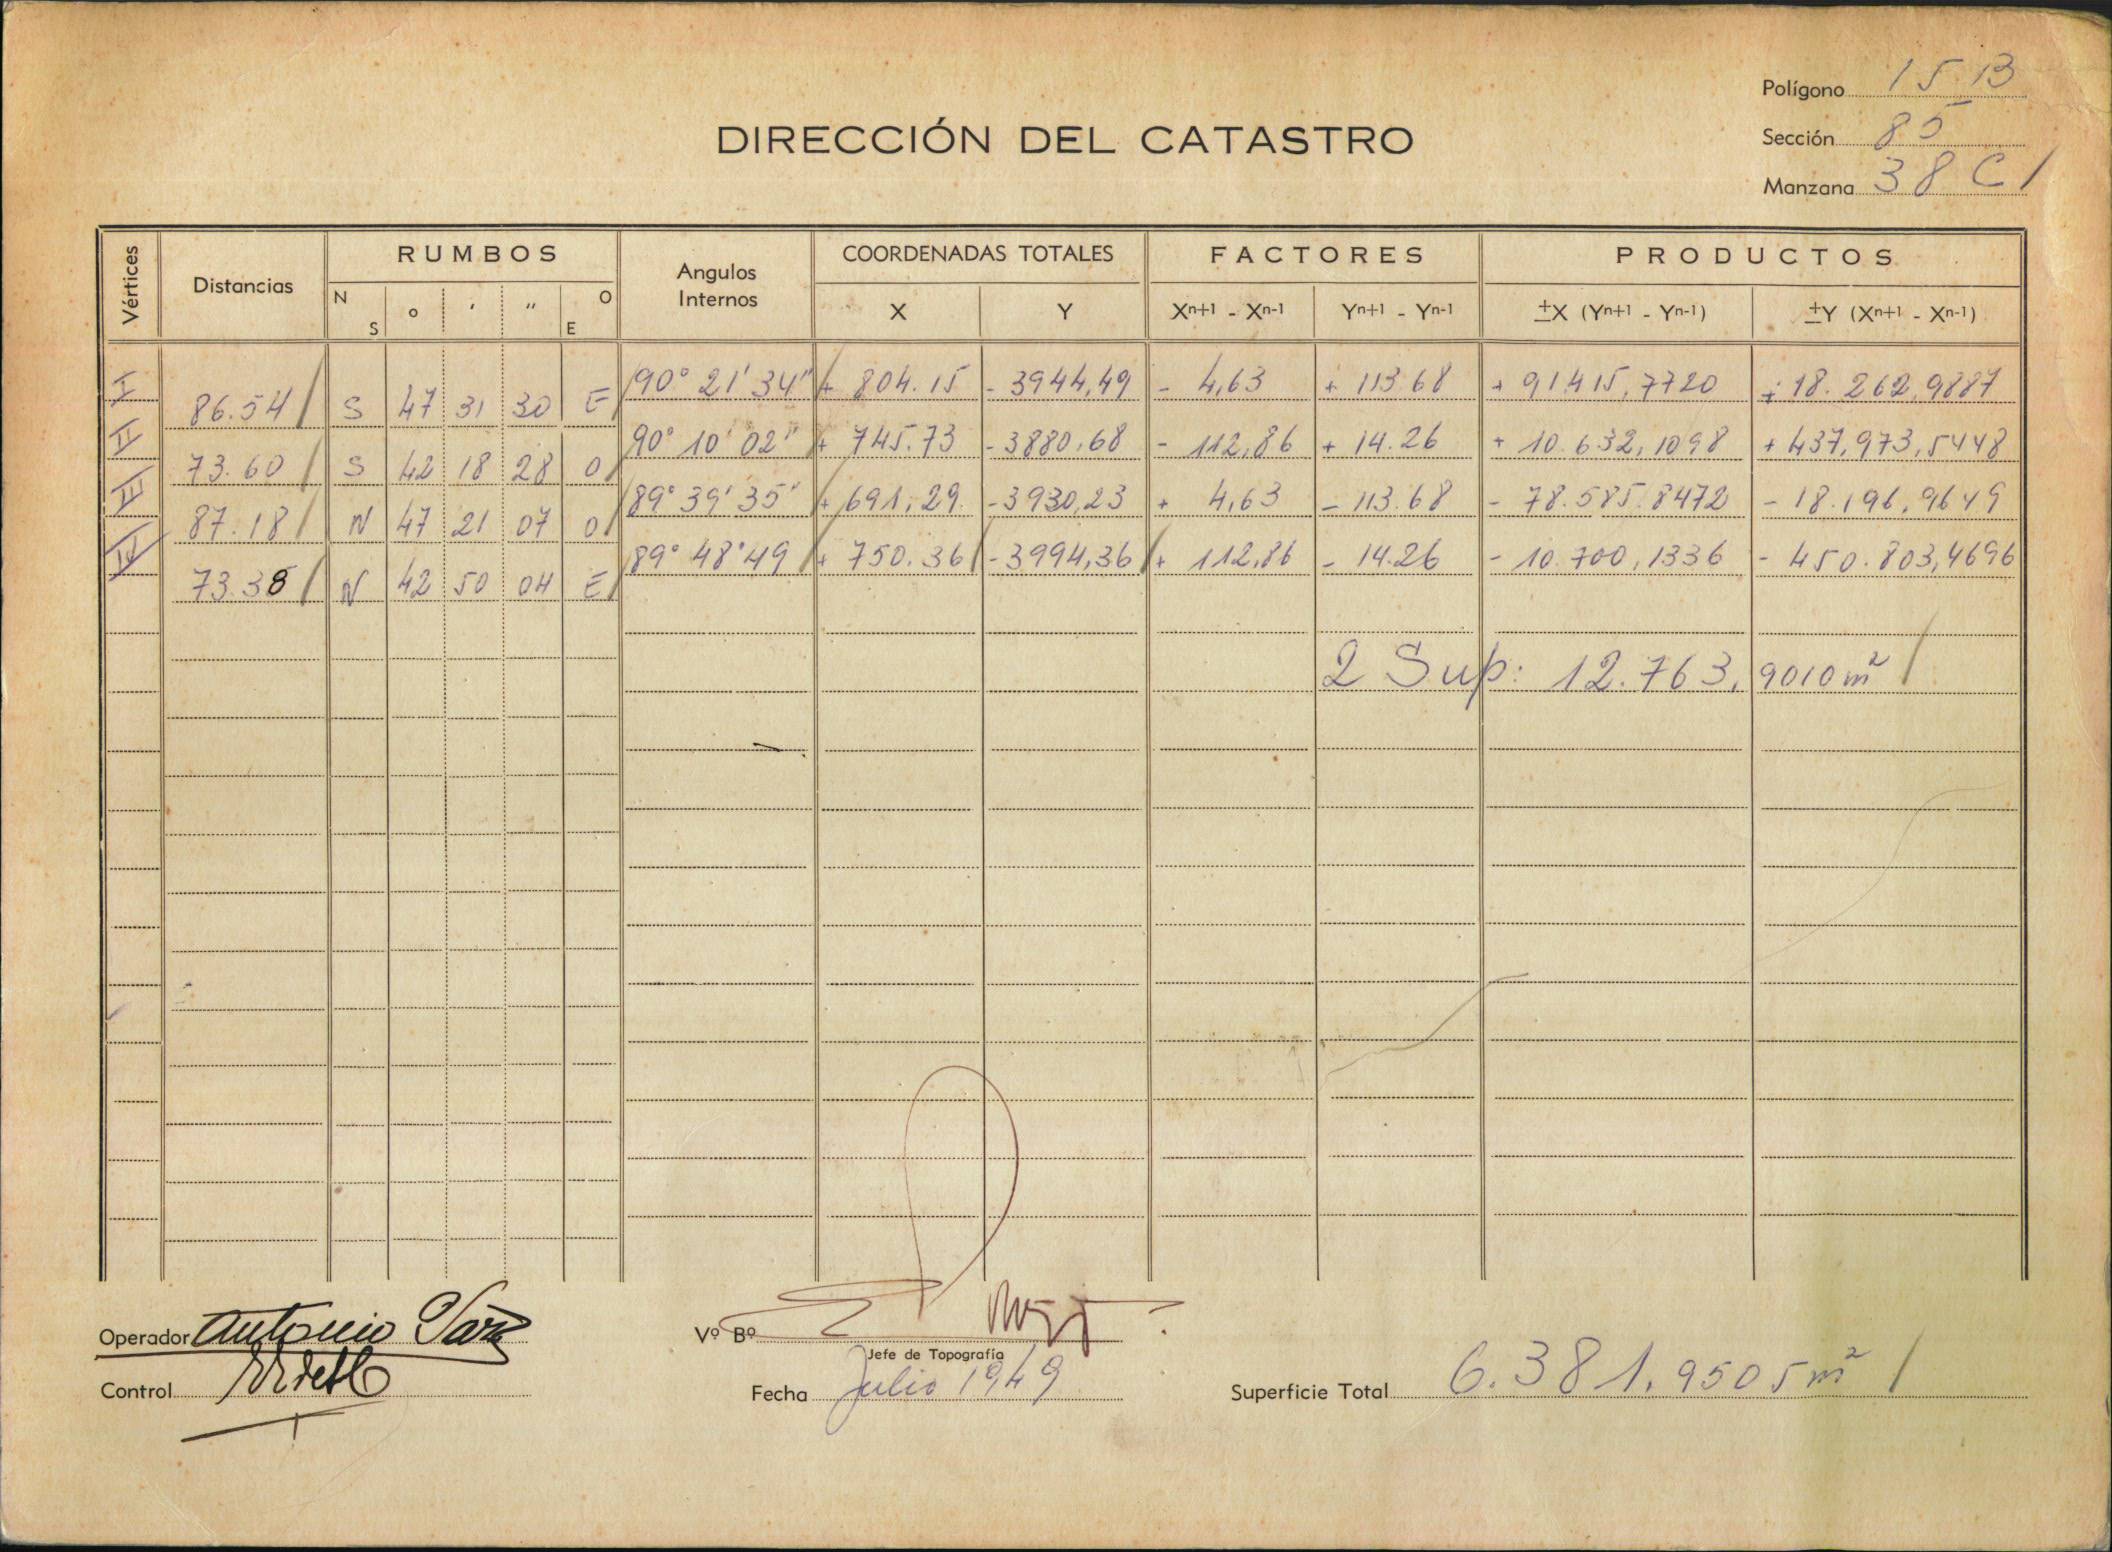 Polígono 15 B
DIRECCIÓN DEL CATASTRO
Sección 85
Manzana 38 C
Vértices Distancias RUMBOS Angulos Internos COORDENADAS TOTALES FACTORES PRODUCTOS
N S ° ' " O E X Y Xn+1 - Xn-1 Yn+1 - Yn-1 ±X (Yn+1 - Yn-1) ±Y (Xn+1 - Xn-1)
I 86.54 S 47 31 30 E 90° 21' 34" + 804.15 - 3944,49 - 4,63 + 113.68 + 91.415,7720 + 18.262,9887
II 73.60 S 42 18 28 O 90° 10' 02" + 745.73 - 3880,68 - 112,86 + 14.26 + 10.632,1098 + 437,973,5448
III 87.18 N 47 21 07 O 89° 39' 35" + 691,29 - 3930,23 + 4,63 - 113.68 - 78.585.8472 - 18.196,9649
IV 73.38 N 42 50 04 E 89° 48' 49 + 750.36 - 3994,36 + 112,86 - 14.26 - 10.700,1336 - 450.803,4696
2 Sup: 12.763,9010 m²
Operador Antonio
Vº Bº
Jefe de Topografía
Control
Fecha Julio 1949
Superficie Total 6.381.9505 m²